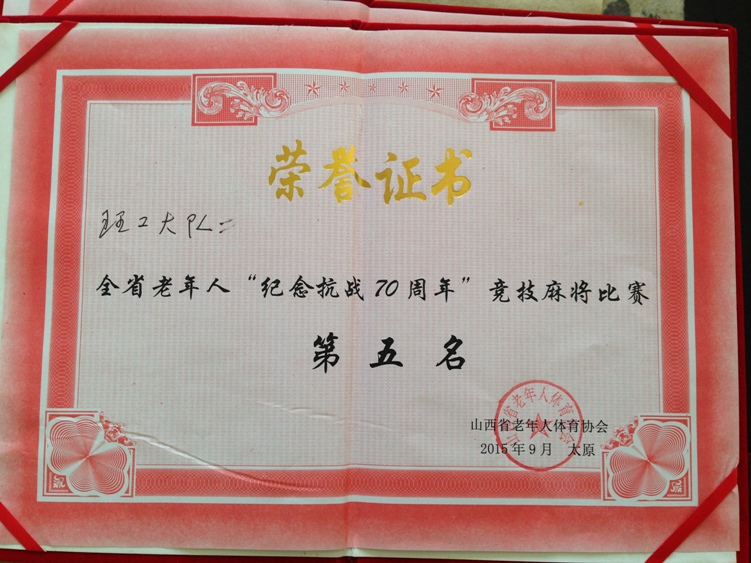 荣誉证书
理工大队：
全省老年人“纪念抗战70周年”竞技麻将比赛
第五名
山西省老年人体育协会
2015年9月 太原
山西省老年人体育协会